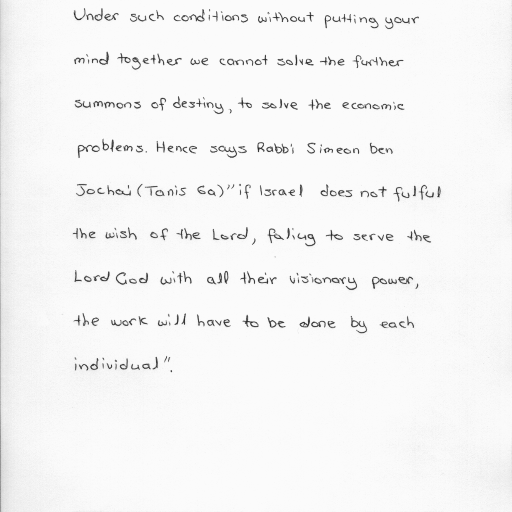 Under such conditions without putting your
mind together we cannot solve the further
summons of destiny, to solve the economic
problems. Hence says Rabbi Simeon ben
Jochai (Tanis 6a) "if Israel does not fulful
the wish of the Lord, faliug to serve the
Lord God with all their visionary power,
the work will have to be done by each
individual".